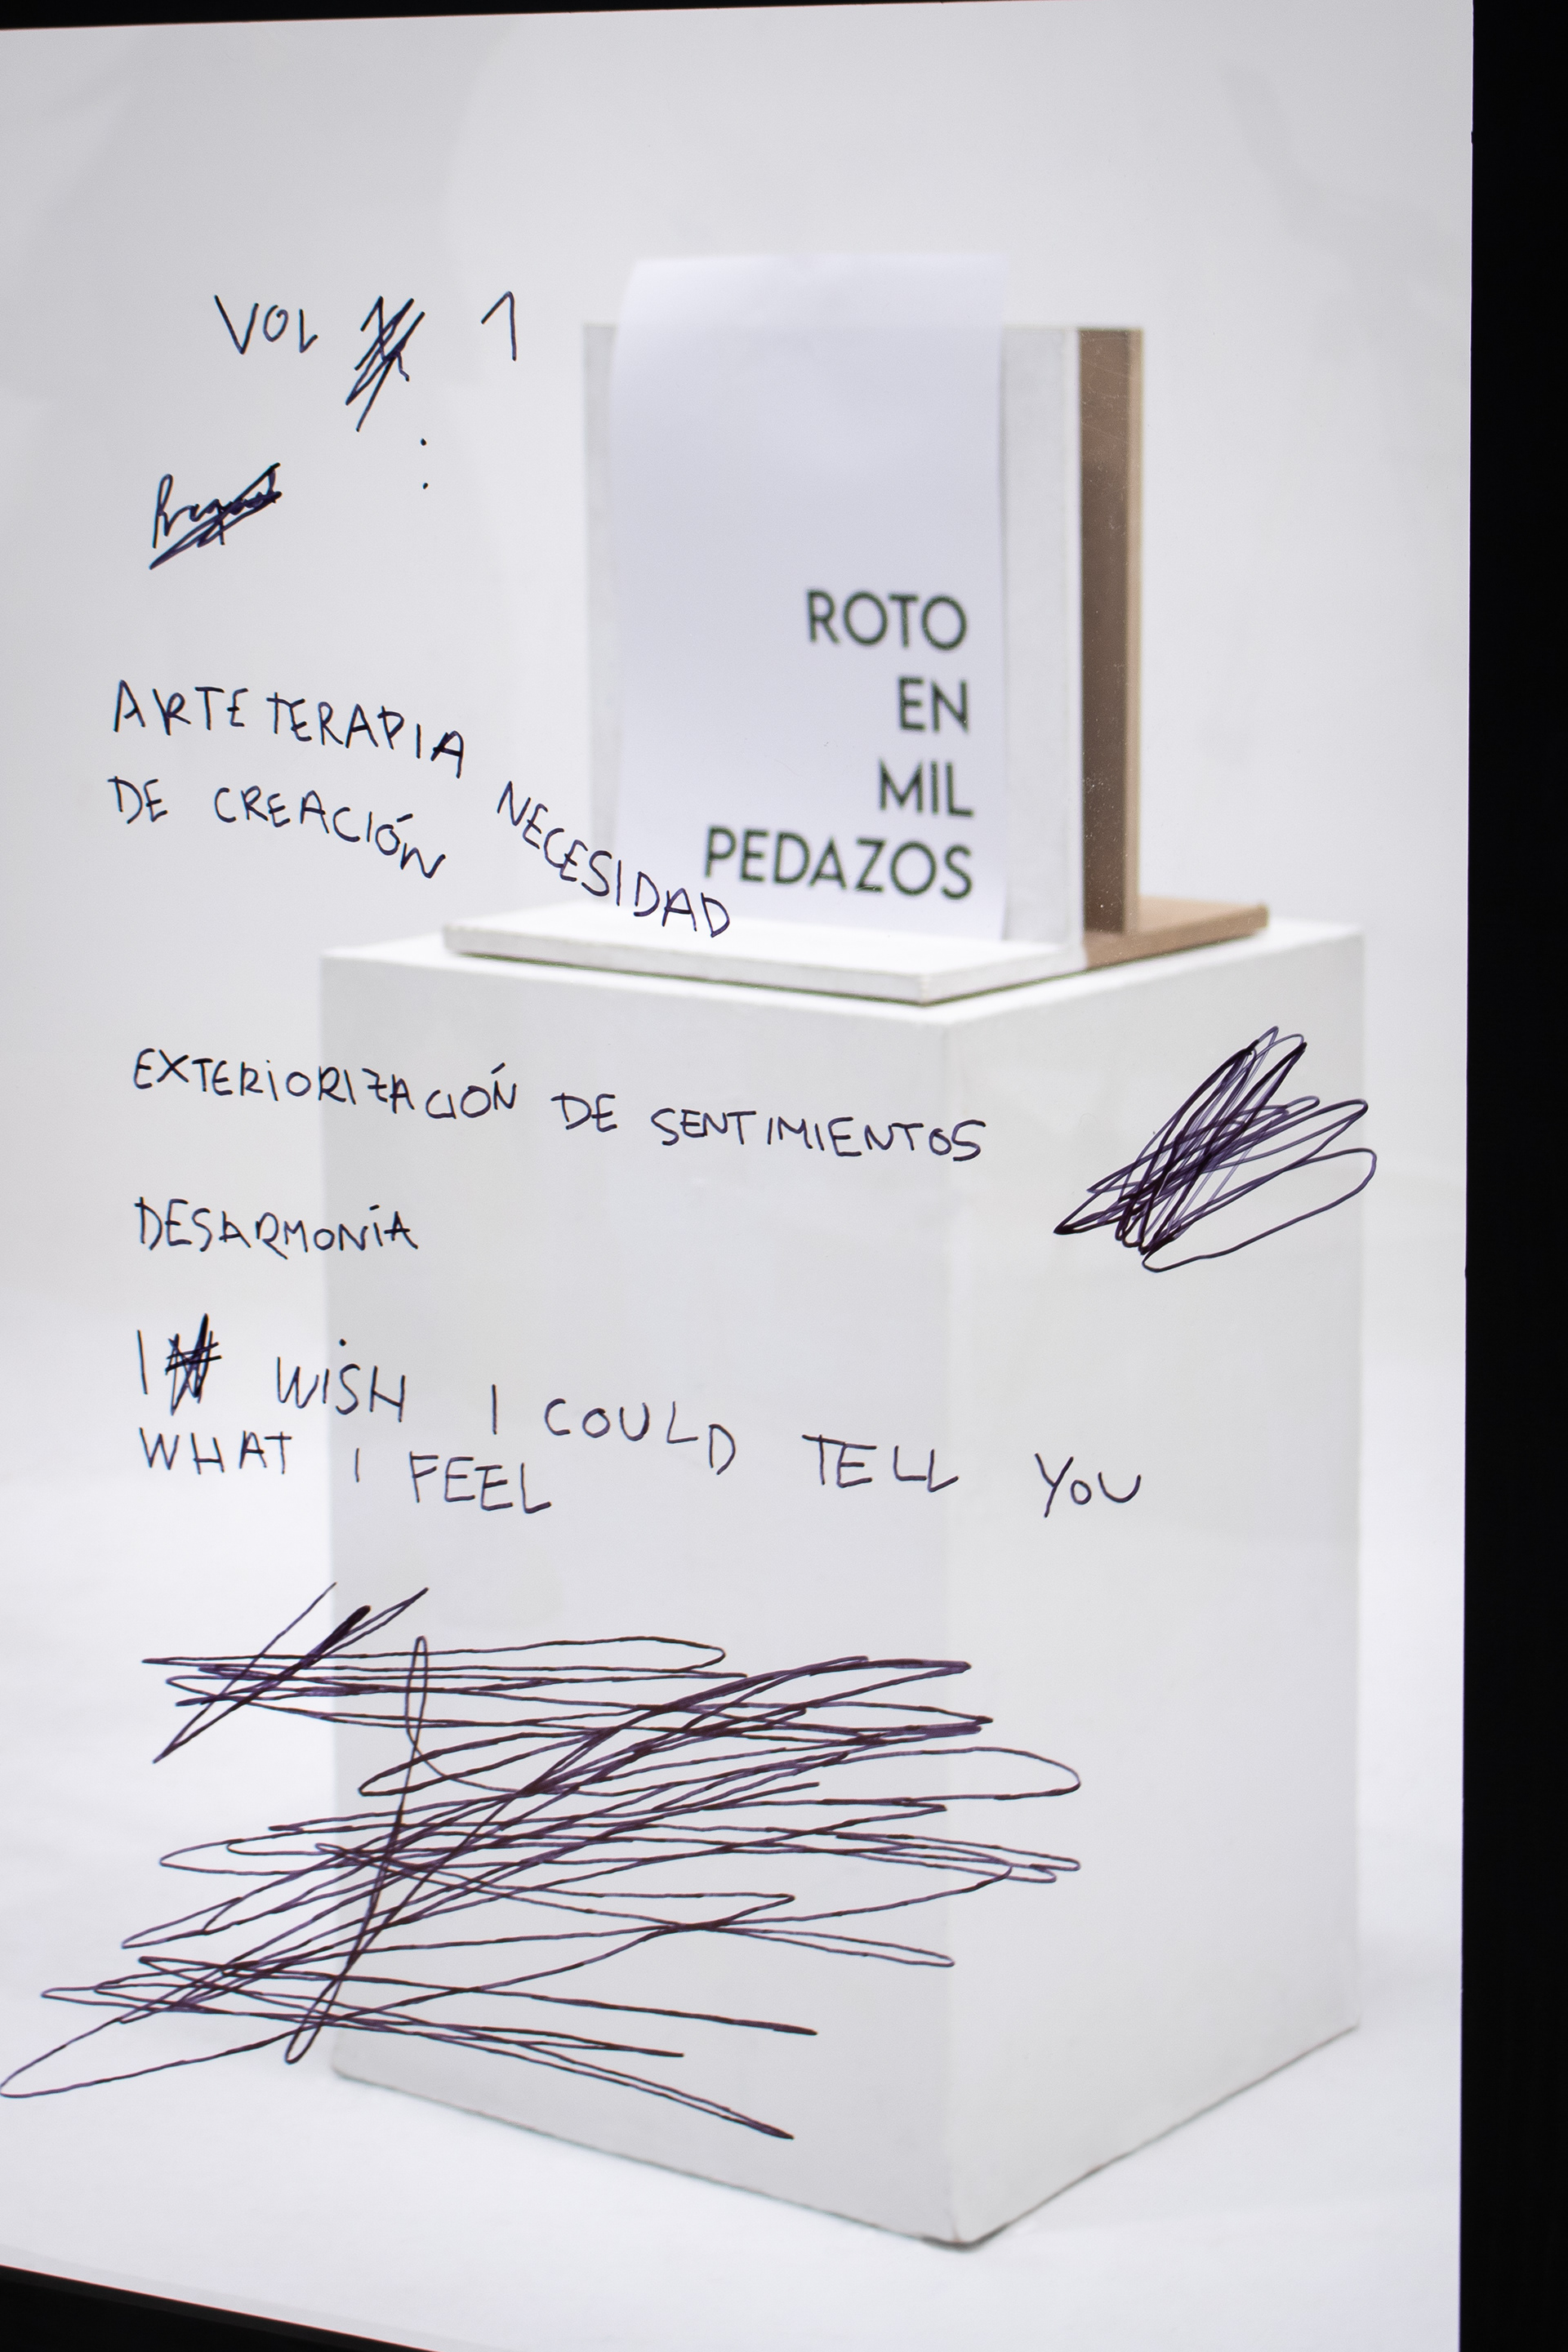 VOL 1
ROTO
EN
MIL
PEDAZOS
ARTETERAPIA
NECESIDAD
DE CREACIÓN
EXTERIORIZACIÓN DE SENTIMIENTOS
DESARMONÍA
I WISH I COULD TELL YOU
WHAT I FEEL